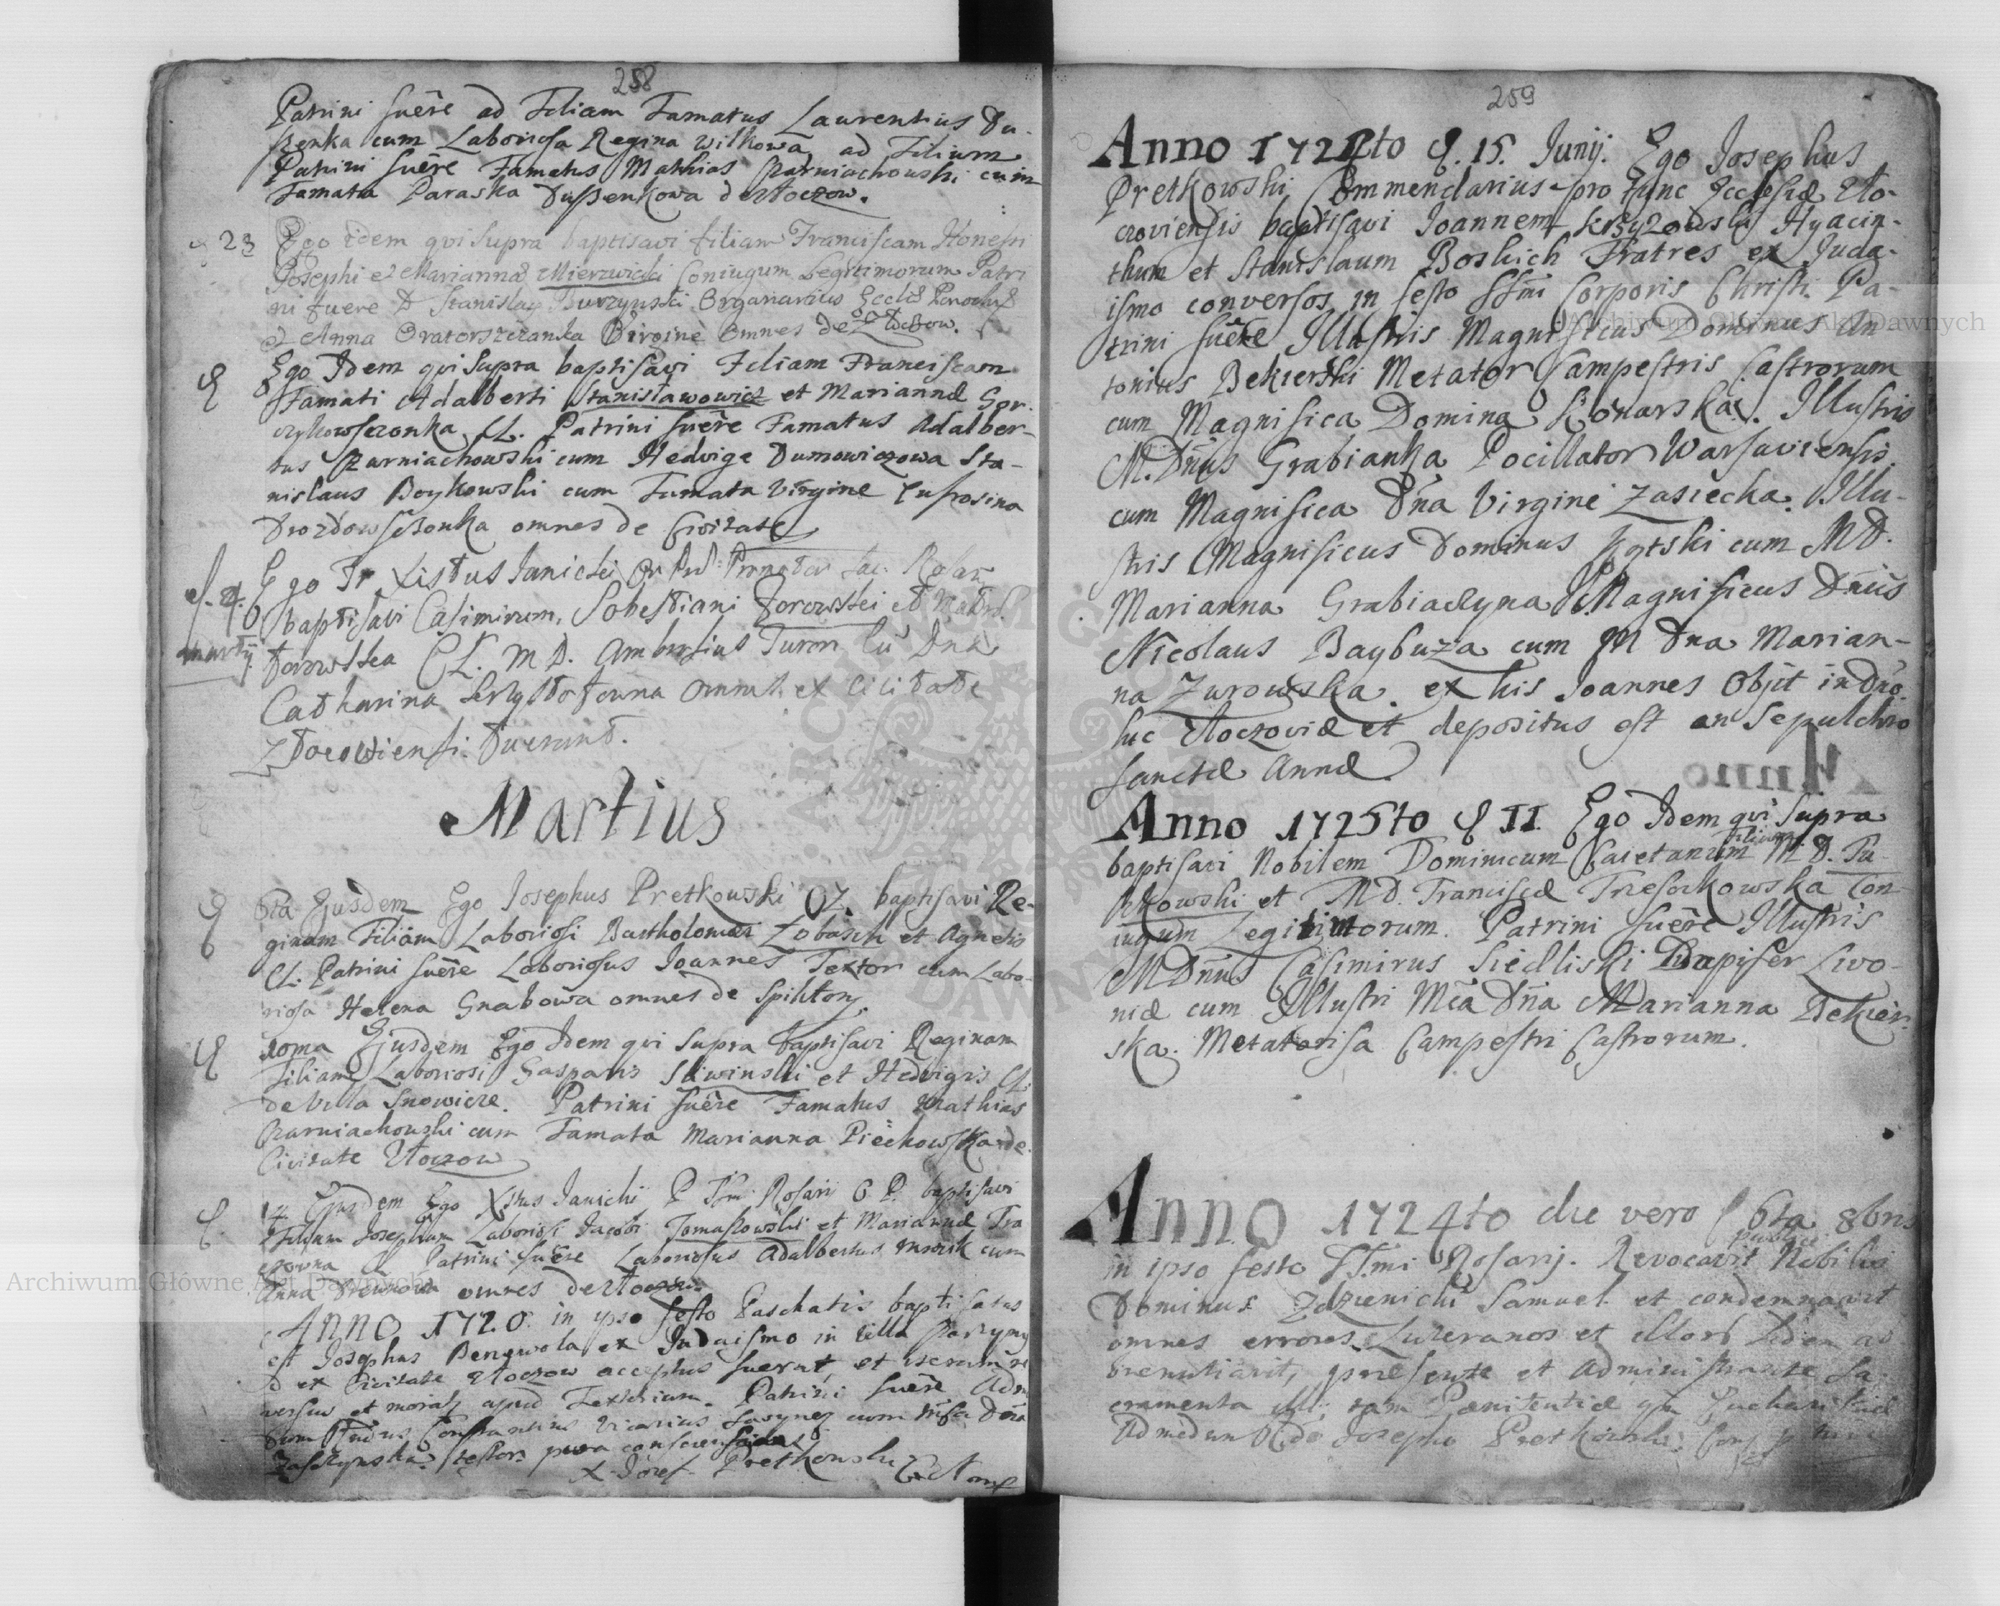 258
Patrini fuêre ad Filiam Famatus Laurentius Du-
szenka cum Laboriosa Regina Wilkowa, ad Filium
Patrini fuêre Famatus Mathias Czarniachowski cum
Famata Paraska Duszenkowa de Złoczow.
23 Ego idem qui supra baptisavi filiam Franciscam Honesti
Josephi et Mariannæ Mierzwicki Coniugum Legitimorum Patri
ni fuere D Stanislaus Burzynski Organarius Ecclæ Parochis
et Anna Oratorszczanka Virgine omnes de Złoczow.
Ego Idem qui supra baptisavi Filiam Franciscam
Famati Adalberti Stanisławowicz et Mariannæ Gor-
czykowsczonka CL. Patrini fuêre Famatus Adalber-
tus Czarniachowski cum Hedvige Dumowiczowa Sta-
nislaus Boykowski cum Famata Virgine Eufrosina
Drozdowsczonka omnes de Civitate
4 Ego Fr Xistus Janicki Or Prd: Promotor Sac. Rosar.
martij baptisavi Casimirum, Sebestiani
CL. M D. Ambrosius Turon Cu Dna
Catharina omnes ex Civitate
Złocoviensi fuerunt.
Martius
6ta Ejusdem Ego Josephus Pretkowski CZ baptisavi Re-
ginam Filiam Laboriosi Bartholomæi Zobasik et Agnetis
CL. Patrini fuêre Laboriosus Joannes Textor cum Labo-
riosa Helena Grabowa omnes de Spiklosy.
10ma Ejusdem Ego Idem qui supra baptisavi Reginam
Filiam Laboriosi Gasparis Sliwinski et Hedvigis CL.
de Villa Snowicze. Patrini fuêre Famatus Mathias
Czarniachowski cum Famata Marianna Piéchowska de
Civitate Złoczow
14 Ejusdem Ego Xistus Janicki P Ssmi Rosarii O P. baptisavi
Filium Josephum Laboriosi Jacobi Tomaszowski et Mariannæ Tra
czowna CL Patrini fuêre Laboriosus Adalbertus cum
Anna omnes de Złoczow
Anno 1720. in ipso festo Paschatis baptisatus
est Josephus Benewola ex Judaismo in Villa
D ex Civitate Złoczow acceptus fuerat et iterum re
versus et moratus apud Textricem. Patrini fuêre Adm
dum Rndus Constantinus Vicarius cum Mfca Dna
testor pura conscientia
X. Jozef Pretkowski
259
Anno 1724to d. 15. Junij. Ego Josephus
Pretkowski Commendarius pro tunc Ecclesiæ Zło-
czoviensis baptisavi Joannem Krzyzowski Hyacin-
thum et Stanislaum Boskich Fratres ex Juda-
ismo conversos in festo SSmi Corporis Christi. Pa-
trini fuêre Illustris Magnificus Dominus An
tonius Bekierski Metator Campestris Castrorum
cum Magnifica Domina Konarska. Illustris
M. Dnus Grabianka Pocillator Warsaviensis
cum Magnifica Dna Virgine Zasiecka. Illu-
stris Magnificus Dominus cum MD.
Marianna Grabiaczyna Magnificus Dnus
Nicolaus Baybuza cum M Dna Marian-
na Zurowska. ex his Joannes Obijt in Dno.
huc Złoczoviæ et depositus est in Sepulchro
Sanctæ Annæ
Anno 1725to d II. Ego Idem qui supra
baptisavi Nobilem Dominicum Caietanum Filium M. D. Pu-
et MD. Franciscæ Con-
iugum Legitimorum. Patrini fuêre Illustris
M Dnus Casimirus Siedliski Dapifer Livo-
niæ cum Illustri Mca Dna Marianna Bekier-
ska. Metatorisa Campestri Castrorum.
Anno 1724to die vero 6ta 8bris
in ipso festo SSmi Rosarij. Revocavit publice Nobilis
Dominus Samuel et condemnavit
omnes errores Luteranos et illorum fidem ac
renuntiavit, præsente et Administrante Sa-
cramenta illi tam Pænitentiæ qm Eucharistiæ
Admodum Rdo Josepho Pretkowski
Archiwum Główne Akt Dawnych
Archiwum Główne Akt Dawnych